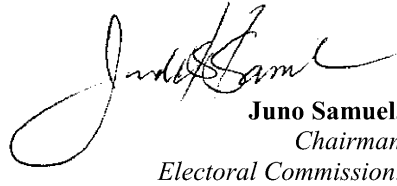 Juno Samuel
Chairman
Electoral Commission